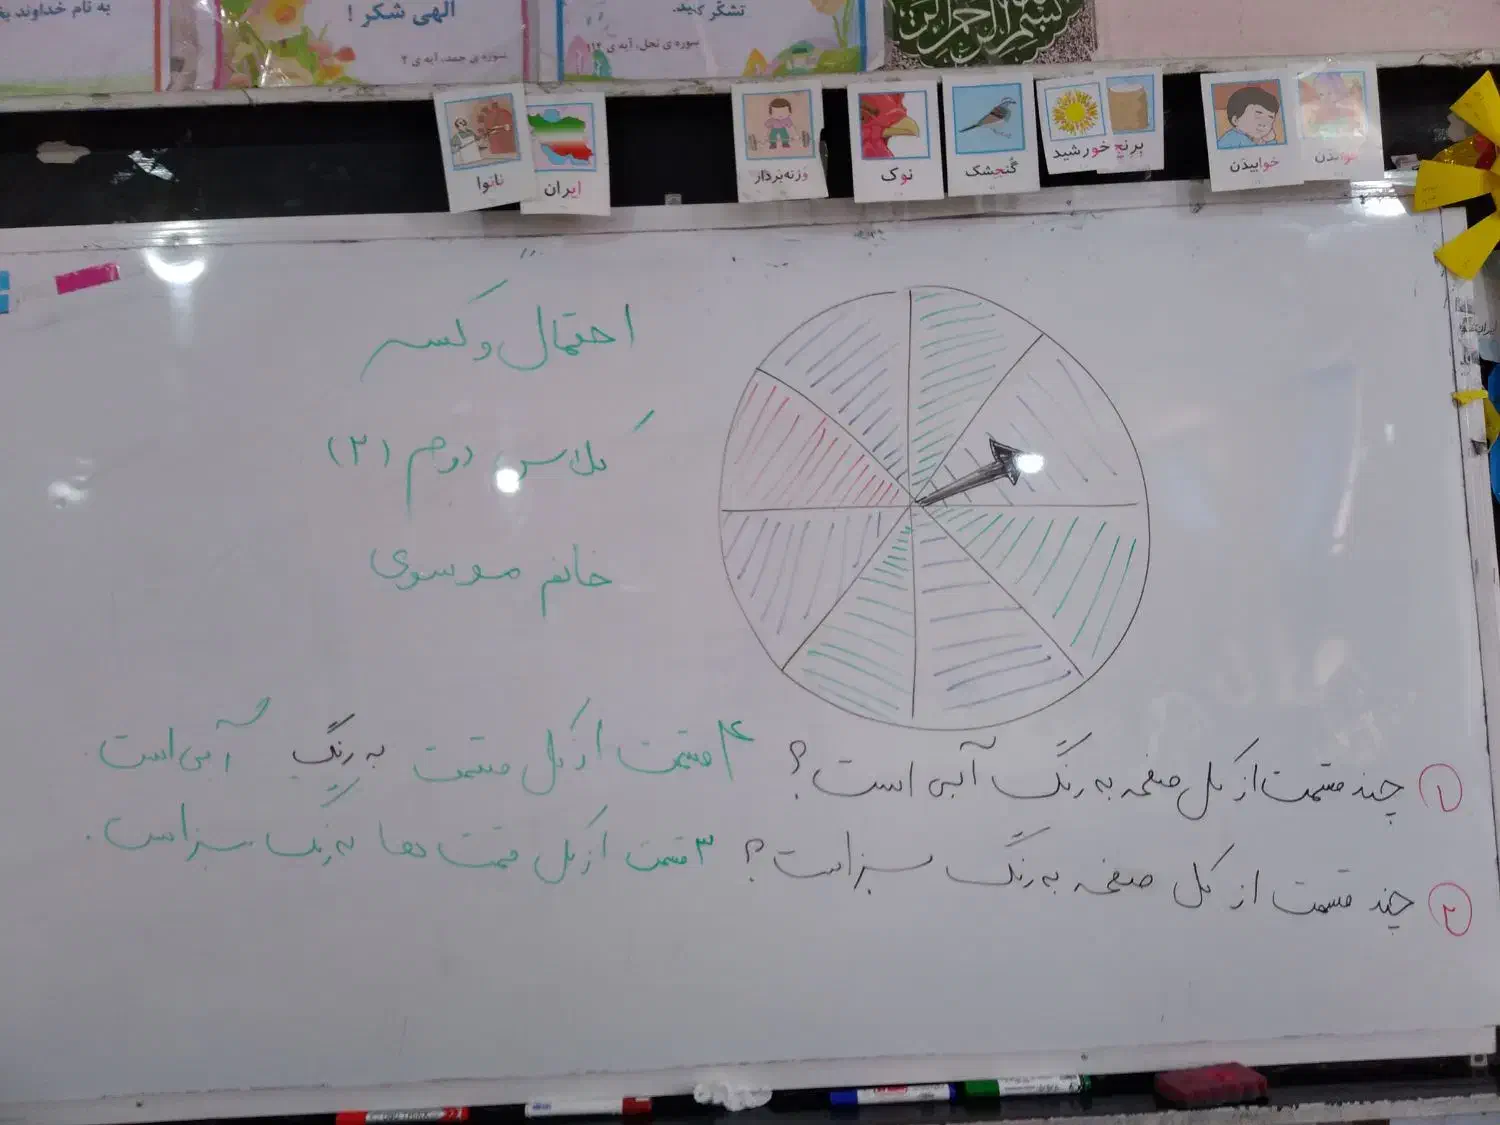 به نام خداوند
الهی شکر !
سوره ی حمد، آیه ی ۲
تشکّر کنید.
سوره ی نحل، آیه ی ۱۱۴
نانوا
ایران
وزنه‌بردار
نوک
گُنجشک
خورشید
برنج
خوابیدَن
خواندَن
احتمال و کسر
کلاس دوم (۲)
خانم موسوی
۱ چند قسمت از کل صفحه به رنگ آبی است؟ ۴ قسمت از کل قسمت به رنگ آبی است.
۲ چند قسمت از کل صفحه به رنگ سبز است؟ ۳ قسمت از کل قسمت ها به رنگ سبز است.